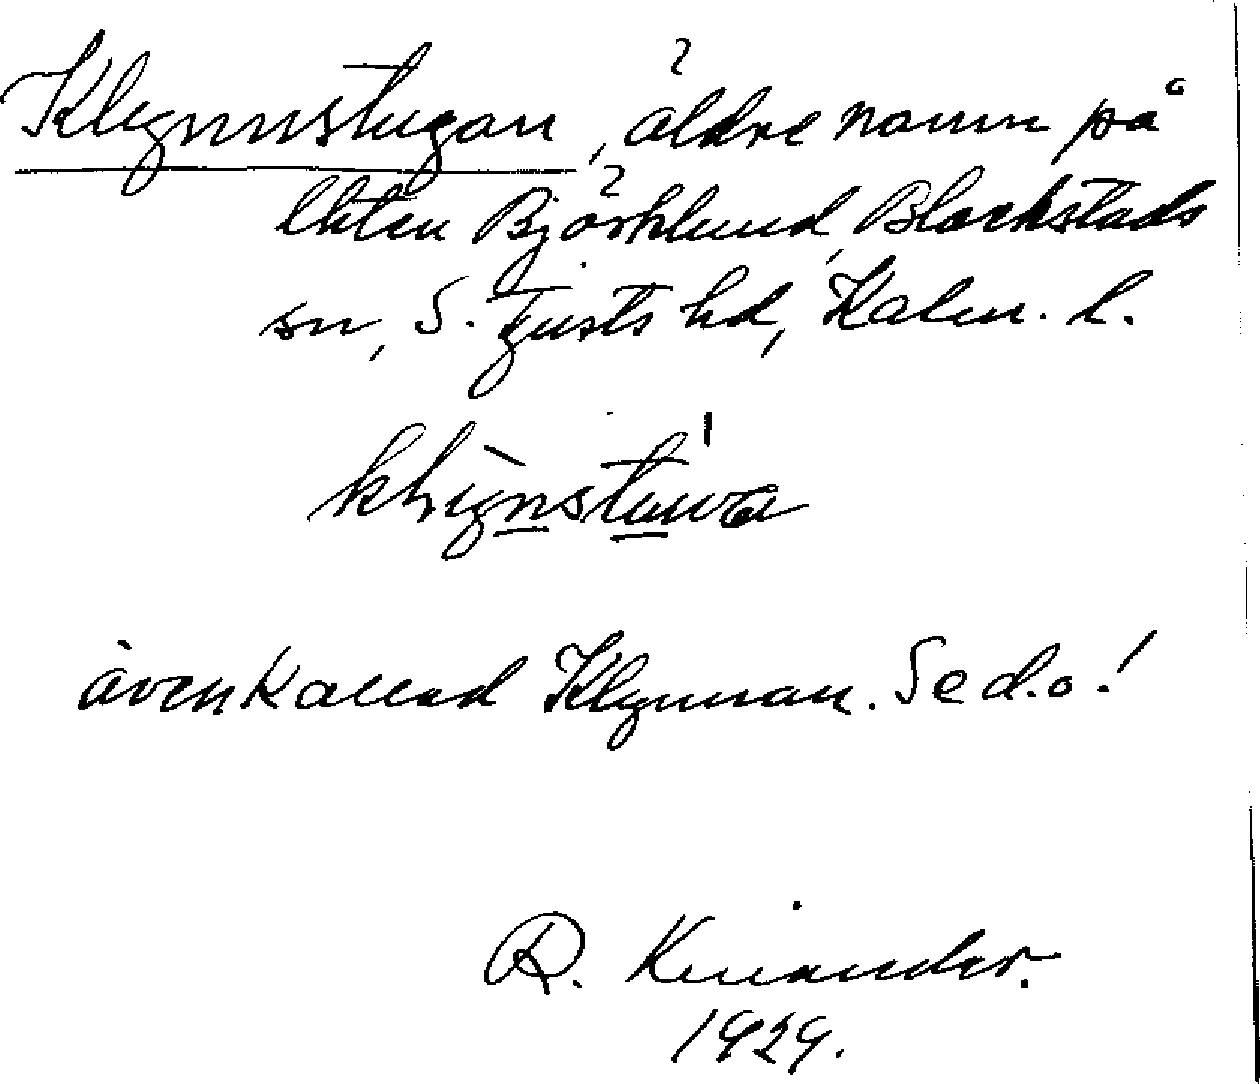 Klynnstugan, äldre namn på
lhten Björklund, Blackstads
sn, S. Tjusts hd, Kalm. l.
även kallad Klynnan. Se d.o.!
R. Kinander.
1929.